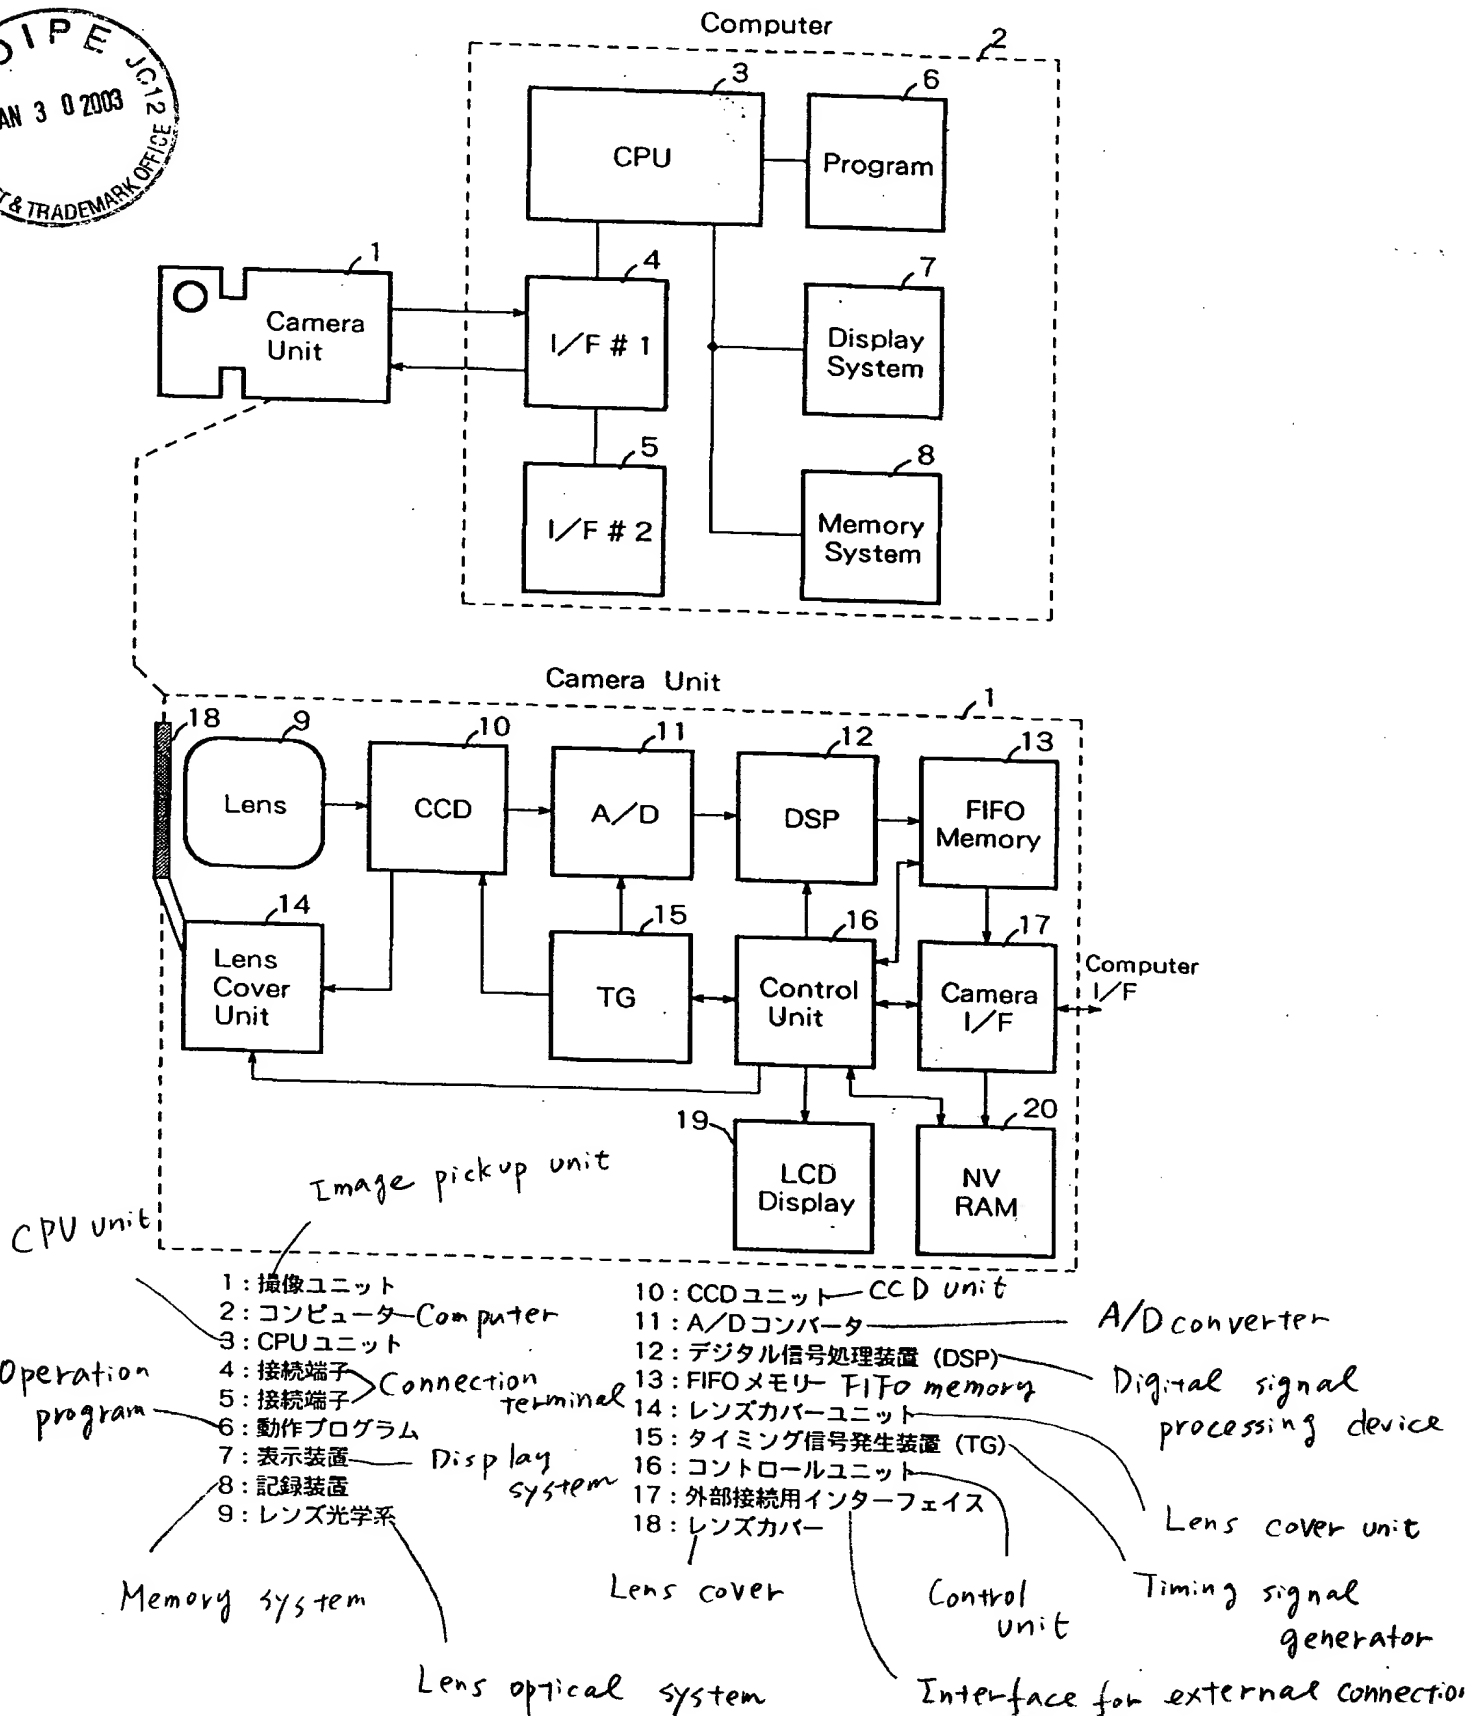 OIPE JC12
AN 3 0 2003
T & TRADEMARK OFFICE
Computer
2
3
CPU
6
Program
1
Camera
Unit
4
I/F # 1
7
Display
System
5
I/F # 2
8
Memory
System
Camera Unit
1
18
9
Lens
10
CCD
11
A/D
12
DSP
13
FIFO
Memory
14
Lens
Cover
Unit
15
TG
16
Control
Unit
17
Camera
I/F
Computer
I/F
19
LCD
Display
20
NV
RAM
Image pickup unit
CPU unit
1 : 撮像ユニット
2 : コンピューター Computer
3 : CPUユニット
4 : 接続端子
5 : 接続端子
Connection
terminal
Operation
program
6 : 動作プログラム
7 : 表示装置
Display
system
8 : 記録装置
9 : レンズ光学系
Memory system
Lens optical system
10 : CCDユニット CCD unit
11 : A/Dコンバータ
A/D converter
12 : デジタル信号処理装置 (DSP)
Digital signal
processing device
13 : FIFOメモリー FIFO memory
14 : レンズカバーユニット
15 : タイミング信号発生装置 (TG)
16 : コントロールユニット
17 : 外部接続用インターフェイス
18 : レンズカバー
Lens cover unit
Lens cover
Control
unit
Timing signal
generator
Interface for external connection